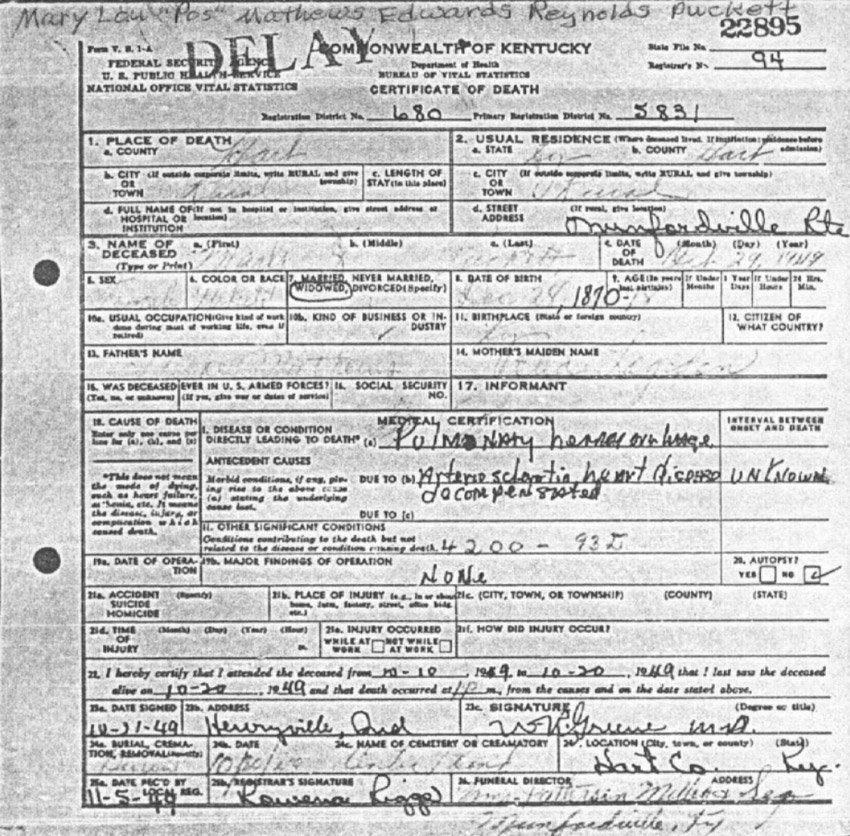 Mary Lou "Pos" Mathews Edwards Reynolds Puckett
22895
DELAY
Form V. S. 1-A
COMMONWEALTH OF KENTUCKY
State File No.
FEDERAL SECURITY AGENCY
Department of Health
Registrar's No. 94
U. S. PUBLIC HEALTH SERVICE
BUREAU OF VITAL STATISTICS
NATIONAL OFFICE VITAL STATISTICS
CERTIFICATE OF DEATH
Registration District No. 680 Primary Registration District No. 5831
1. PLACE OF DEATH
a. COUNTY Hart
2. USUAL RESIDENCE (Where deceased lived. If institution: residence before admission)
a. STATE Ky b. COUNTY Hart
b. CITY (If outside corporate limits, write RURAL and give township)
OR
TOWN Rural
c. LENGTH OF
STAY (in this place)
c. CITY (If outside corporate limits, write RURAL and give township)
OR
TOWN Rural
d. FULL NAME OF (If not in hospital or institution, give street address or location)
HOSPITAL OR
INSTITUTION
d. STREET (If rural, give location)
ADDRESS Munfordville Rte
3. NAME OF
DECEASED
(Type or Print)
a. (First) b. (Middle) c. (Last)
4. DATE (Month) (Day) (Year)
OF
DEATH 1949
5. SEX
6. COLOR OR RACE
7. MARRIED, NEVER MARRIED,
WIDOWED, DIVORCED (Specify)
8. DATE OF BIRTH
Dec 24, 1870
9. AGE (In years last birthday) If Under 1 Year Months Days If Under 24 Hrs. Hours Min.
10a. USUAL OCCUPATION (Give kind of work done during most of working life, even if retired)
10b. KIND OF BUSINESS OR INDUSTRY
11. BIRTHPLACE (State or foreign country)
12. CITIZEN OF
WHAT COUNTRY?
13. FATHER'S NAME
14. MOTHER'S MAIDEN NAME
15. WAS DECEASED EVER IN U. S. ARMED FORCES?
(Yes, no, or unknown) (If yes, give war or dates of service)
16. SOCIAL SECURITY
NO.
17. INFORMANT
18. CAUSE OF DEATH
Enter only one cause per
line for (a), (b), and (c)
MEDICAL CERTIFICATION
INTERVAL BETWEEN
ONSET AND DEATH
I. DISEASE OR CONDITION
DIRECTLY LEADING TO DEATH* (a) Pulmonary hemorrhage
*This does not mean
the mode of dying,
such as heart failure,
asthenia, etc. It means
the disease, injury, or
complication which
caused death.
ANTECEDENT CAUSES
Morbid conditions, if any, giv-
ing rise to the above cause
(a) stating the underlying
cause last.
DUE TO (b) Arteriosclerotic heart disease UNKNOWN
decompensated
DUE TO (c)
II. OTHER SIGNIFICANT CONDITIONS
Conditions contributing to the death but not
related to the disease or condition causing death. 4200 - 93D
19a. DATE OF OPERA-
TION
19b. MAJOR FINDINGS OF OPERATION
None
20. AUTOPSY?
YES NO ✓
21a. ACCIDENT (Specify)
SUICIDE
HOMICIDE
21b. PLACE OF INJURY (e.g., in or about home, farm, factory, street, office bldg. etc.)
21c. (CITY, TOWN, OR TOWNSHIP) (COUNTY) (STATE)
21d. TIME (Month) (Day) (Year) (Hour)
OF
INJURY m.
21e. INJURY OCCURRED
WHILE AT WORK NOT WHILE AT WORK
21f. HOW DID INJURY OCCUR?
22. I hereby certify that I attended the deceased from 10-10, 1949 to 10-20, 1949 that I last saw the deceased
alive on 10-20, 1949 and that death occurred at m., from the causes and on the date stated above.
23a. DATE SIGNED
10-21-49
23b. ADDRESS
Henryville, Ind
23c. SIGNATURE (Degree or title)
W K Greene M.D.
24a. BURIAL, CREMA-
TION, REMOVAL (Specify)
24b. DATE
24c. NAME OF CEMETERY OR CREAMATORY
24d. LOCATION (City, town, or county) (State)
Hart Co. Ky.
25a. DATE REC'D BY
LOCAL REG.
11-5-49
25b. REGISTRAR'S SIGNATURE
Rowena Riggs
26. FUNERAL DIRECTOR ADDRESS
Munfordville, Ky